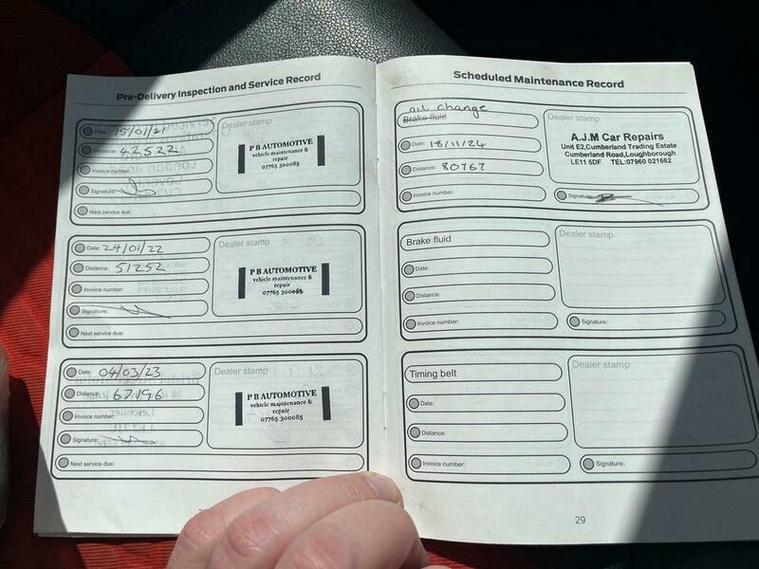 Pre-Delivery Inspection and Service Record
Date: 15/01/21
Distance: 42522
Invoice number:
Signature:
Next service due:
Dealer stamp
P B AUTOMOTIVE
vehicle maintenance &
repair
07765 300085
Date: 24/01/22
Distance: 51252
Invoice number:
Signature:
Next service due:
Dealer stamp
P B AUTOMOTIVE
vehicle maintenance &
repair
07765 300085
Date: 04/03/23
Distance: 67196
Invoice number:
Signature:
Next service due:
Dealer stamp
P B AUTOMOTIVE
vehicle maintenance &
repair
07765 300085
Scheduled Maintenance Record
oil change
Brake fluid
Date: 18/11/24
Distance: 80767
Invoice number:
Dealer stamp
A.J.M Car Repairs
Unit E2,Cumberland Trading Estate
Cumberland Road,Loughborough
LE11 5DF TEL:07960 021662
Signature:
Brake fluid
Date:
Distance:
Invoice number:
Dealer stamp
Signature:
Timing belt
Date:
Distance:
Invoice number:
Dealer stamp
Signature:
29